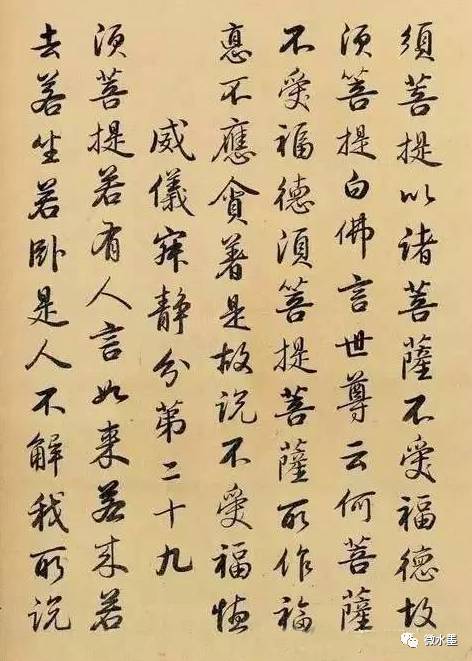 須菩提以諸菩薩不受福德故
須菩提白佛言世尊云何菩薩
不受福德須菩提菩薩所作福
悳不應貪著是故說不受福德
威儀寂靜分第二十九
須菩提若有人言如来若来若
去若坐若卧是人不解我所説
微水墨